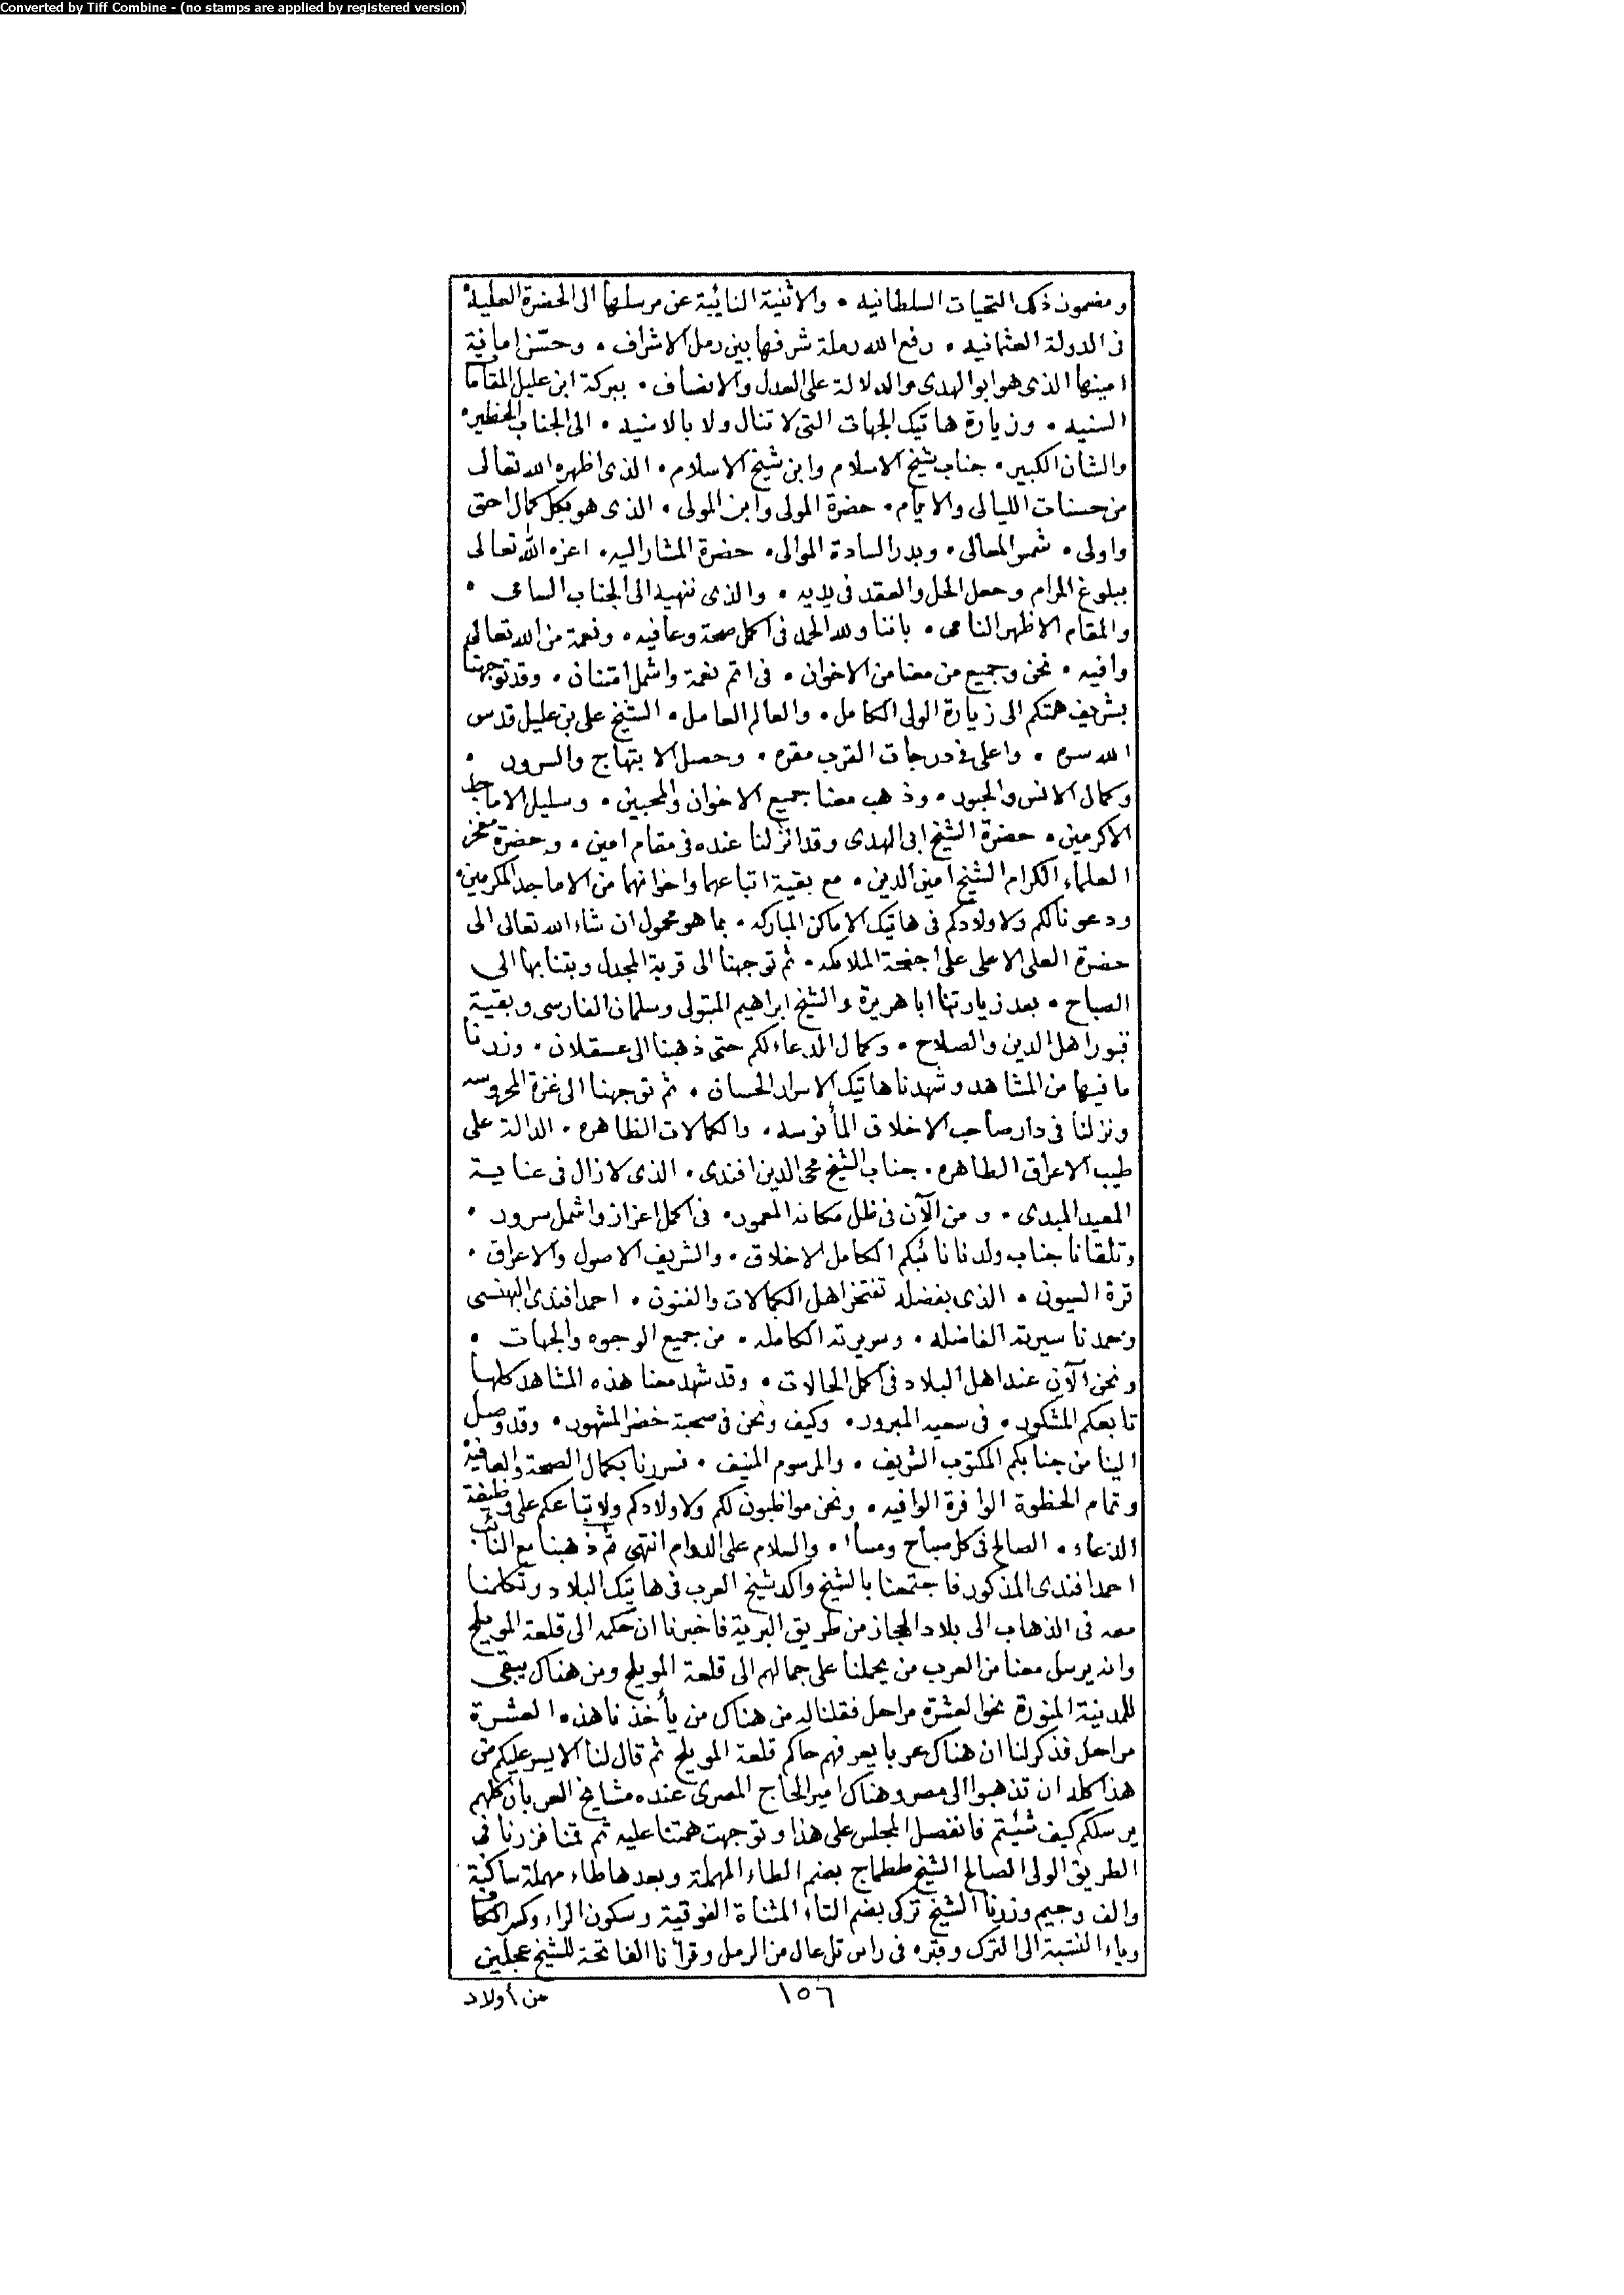 Converted by Tiff Combine - (no stamps are applied by registered version)
ومضمون ذلك التحيات السلطانيه • والاثنية النائبة عن مرسلها الى الحضرة العليه •
فى الدولة العثمانيه • رفع الله رملة شرفها بين رمل الاشراف • وحسّن امانية
امينها الذى هو ابو الهدى والدلالة على العدل والانصاف • ببركة ابن عليل المقاما
السنيه • وزيارة هاتيك الجهات التى لا تنال ولا بالامنيه • الى الجناب الخطير •
والشان الكبير • جناب شيخ الاسلام وابن شيخ الاسلام • الذى اظهره الله تعالى
من حسنات الليالى والايام • حضرة المولى وابن المولى • الذى هو بكل كمال احق
واولى • شمس المعالى • وبدر السادة الموالى • حضرة المشار اليه • اعزه الله تعالى
ببلوغ المرام وجعل الحل والعقد فى يديه • والذى ننهيه الى الجناب السامى •
والمقام الاظهر النامى • باننا ولله الحمد فى اكمل صحة وعافيه • ونعمة من الله تعالى
وافيه • نحن وجميع من معنا من الاخوان • فى اتم نعمة واشمل امتنان • وقد توجهنا
بشريف همتكم الى زيارة الولى الكامل • والعالم العامل • الشيخ على بن عليل قدس
الله سره • واعلى فى درجات القرب مقره • وحصل الابتهاج والسرور •
وكمال الانس والحبور • وذهب معنا جميع الاخوان والمحبين • وسليل الاماجد
الاكرمين • حضرة الشيخ ابى الهدى وقد انزلنا عنده فى مقام امين • وحضرة مفخر
العلماء الكرام الشيخ امين الدين • مع بقية اتباعهما واخوانهما من الاماجد المكرمين •
ودعونا لكم ولاولادكم فى هاتيك الاماكن المباركه • بما هو محمول ان شاء الله تعالى الى
حضرة العلى الاعلى على اجنحة الملائكه • ثم توجهنا الى قرية المجدل وبتنا بها الى
الصباح • بعد زيارتنا ابا هريرة والشيخ ابراهيم المتبولى وسلمان الفارسى وبقية
قبور اهل الدين والصلاح • وكمال الدعاء لكم حتى ذهبنا الى عسقلان • وزرنا
ما فيها من المشاهد وشهدنا هاتيك الاسرار الحسان • ثم توجهنا الى غزة المحروسه
ونزلنا فى دار صاحب الاخلاق المأنوسه • والكمالات الظاهره • الدالة على
طيب الاعراق الطاهره • جناب الشيخ محى الدين افندى • الذى لا زال فى عناية
المعيد المبدى • و من الآن فى ظل مكانه المعمور • فى اكمل اعزاز واشمل سرور •
وتلقانا جناب ولدنا نائبكم الكامل الاخلاق • والشريف الاصول والاعراق •
قرة العيون • الذى بفضله تفتخر اهل الكمالات والفنون • احمد افندى البهنسى
وحمدنا سيرته الفاضله • وسريرته الكامله • من جميع الوجوه والجهات •
ونحن الآن عند اهل البلاد فى اكمل الحالات • وقد شهد معنا هذه المشاهد كلها
تابعكم المشكور • فى سعيه المبرور • وكيف ونحن فى صحبة خضر المشهور • وقد وصل
الينا من جنابكم المكتوب الشريف • والمرسوم المنيف • فسررنا بكمال الصحة والعافية
وتمام الحظوة الوافرة الوافيه • ونحن مواظبون لكم ولاولادكم ولاتباعكم على وظيفة
الدعاء • الصالح فى كل صباح ومساء • والسلام على الدوام انتهى ثم ذهبنا مع النائب
احمد افندى المذكور فاجتمعنا بالشيخ واكد شيخ العرب فى هاتيك البلاد وتكلمنا
معه فى الذهاب الى بلاد الحجاز من طريق البرية فاخبرنا ان حكمه الى قلعة المويلح
وانه يرسل معنا من العرب من يحملنا على جمالهم الى قلعة المويلح ومن هناك يبقى
للمدينة المنورة نحو العشرة مراحل فقلنا له من هناك من يأخذنا هذه العشرة
مراحل فذكر لنا ان هناك عربا يعرفهم حاكم قلعة المويلح ثم قال لنا الايسر عليكم من
هذا كله ان تذهبوا الى مصر وهناك امير الحاج المصرى عنده مشايخ العربان كلهم
يرسلكم كيف شئتم فانفصل المجلس على هذا وتوجهت همتنا عليه ثم قمنا فزرنا فى
الطريق الولى الصالح الشيخ ططماج بضم الطاء المهملة وبعدها طاء مهملة ساكنة
والف وجيم وزرنا الشيخ تركى بضم التاء المثناة الفوقية وسكون الراء وكسر الكاف
وياء النسبة الى الترك وقبره فى راس تل عال من الرمل وقرأنا الفاتحة للشيخ عجلين
١٥٦
من أولاد